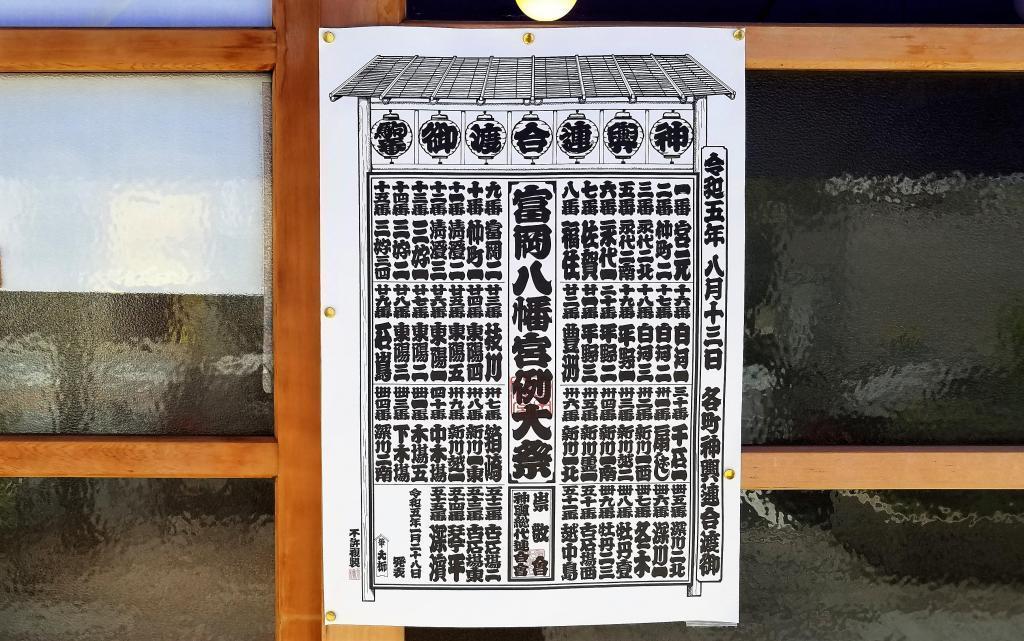 神輿連合渡御駒番
令和五年 八月十三日 各町神輿連合渡御
一番 宮元
二番 仲町二
三番 永代二北
五番 永代二南
六番 永代一
七番 佐賀
八番 福住
富岡八幡宮例大祭
九番 富岡二
十番 仲町一
十一番 清澄二
十二番 清澄三
十三番 三好一
十四番 三好二
十五番 三好三四
十六番 白河一
十七番 白河二
十八番 白河三
十九番 平野一
二十番 平野二
平野三
廿二番 豊洲
廿三番 枝川
廿四番 東陽四
廿五番 東陽五
廿六番 東陽一
廿七番 東陽二
廿八番 東陽三
廿九番 石島
三十番 千石一
新川一西
新川一南
卅六番 新川一北
卅七番 箱崎
卅八番 新川一東
四十番 中木場
木場五
下木場
卌四番 深川二南
卌五番 深川二北
卌六番 深川一
卌七番 冬木
卌八番 牡丹壹
卌九番 牡丹二三
五十番 古石場西
五十一番 越中島
崇敬會
神輿総代連合會
五十二番 古石場二
五十三番 古石場東
五十四番 琴平
五十五番 深濱
令和五年一月二十八日
発表
不許複製